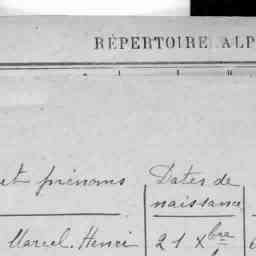 RÉPERTOIRE ALP
et prénoms
Dates de
naissance
Marcel. Henri
21 Xbre